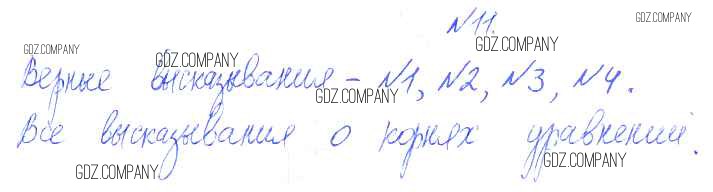 №11.
Верные высказывания – №1, №2, №3, №4.
Все высказывания о корнях уравнений.
GDZ.COMPANY
GDZ.COMPANY
GDZ.COMPANY
GDZ.COMPANY
GDZ.COMPANY
GDZ.COMPANY
GDZ.COMPANY